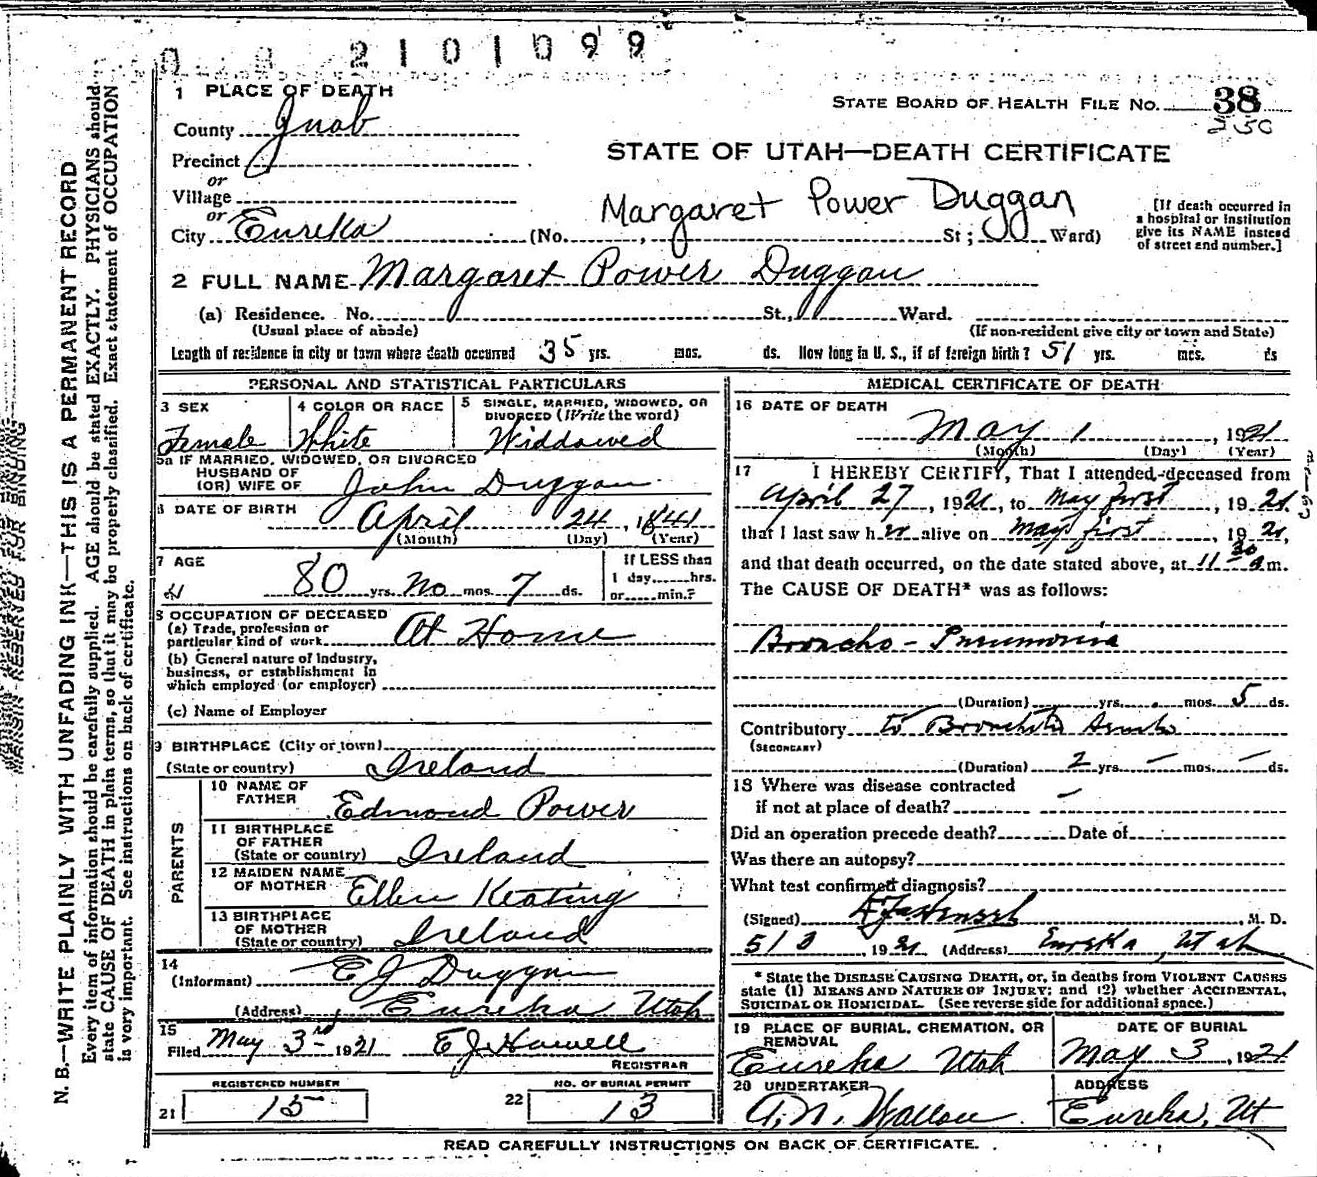 2101099
1 PLACE OF DEATH
STATE BOARD OF HEALTH FILE No. 38
250
County Juab
STATE OF UTAH—DEATH CERTIFICATE
Precinct
or
Village
Margaret Power Duggan
or
City Eureka (No. , St; Ward)
[If death occurred in
a hospital or institution
give its NAME instead
of street and number.]
2 FULL NAME Margaret Power Duggan
(a) Residence. No. St., Ward.
(Usual place of abode) (If non-resident give city or town and State)
Length of residence in city or town where death occurred 35 yrs. mos. ds. How long in U. S., if of foreign birth? 51 yrs. mos. ds
PERSONAL AND STATISTICAL PARTICULARS
3 SEX
Female
4 COLOR OR RACE
White
5 SINGLE, MARRIED, WIDOWED, OR
DIVORCED (Write the word)
Widdowed
5a IF MARRIED, WIDOWED, OR DIVORCED
HUSBAND OF
(OR) WIFE OF John Duggan
6 DATE OF BIRTH
April 24, 1841
(Month) (Day) (Year)
7 AGE
80 yrs. No mos. 7 ds.
If LESS than
1 day......hrs.
or......min.?
8 OCCUPATION OF DECEASED
(a) Trade, profession or
particular kind of work At Home
(b) General nature of Industry,
business, or establishment in
which employed (or employer)
(c) Name of Employer
9 BIRTHPLACE (City or town)
(State or country) Ireland
PARENTS
10 NAME OF
FATHER Edmond Power
11 BIRTHPLACE
OF FATHER
(State or country) Ireland
12 MAIDEN NAME
OF MOTHER Ellen Keating
13 BIRTHPLACE
OF MOTHER
(State or country) Ireland
14
(Informant) E J Duggan
(Address) Eureka Utah
15
Filed May 3rd 1921 E J Howell
REGISTRAR
REGISTERED NUMBER
21 15
NO. OF BURIAL PERMIT
22 13
MEDICAL CERTIFICATE OF DEATH
16 DATE OF DEATH
May 1, 1921
(Month) (Day) (Year)
17 I HEREBY CERTIFY, That I attended deceased from
April 27, 1921, to May first, 1921,
that I last saw her alive on May first, 1921,
and that death occurred, on the date stated above, at 11 30 a m.
The CAUSE OF DEATH* was as follows:
Broncho-Pneumonia
(Duration) yrs. mos. 5 ds.
Contributory to Bronchitis
(SECONDARY)
(Duration) 2 yrs. — mos. — ds.
18 Where was disease contracted
if not at place of death? —
Did an operation precede death? Date of
Was there an autopsy?
What test confirmed diagnosis?
(Signed) , M. D.
5/3 1921 (Address) Eureka, Utah
* State the DISEASE CAUSING DEATH, or, in deaths from VIOLENT CAUSES
state (1) MEANS AND NATURE OF INJURY; and (2) whether ACCIDENTAL,
SUICIDAL OR HOMICIDAL. (See reverse side for additional space.)
19 PLACE OF BURIAL, CREMATION, OR
REMOVAL
Eureka Utah
DATE OF BURIAL
May 3, 1921
20 UNDERTAKER
ADDRESS
Eureka, Ut
READ CAREFULLY INSTRUCTIONS ON BACK OF CERTIFICATE.
MARGIN RESERVED FOR BINDING
N. B.—WRITE PLAINLY WITH UNFADING INK—THIS IS A PERMANENT RECORD
Every item of information should be carefully supplied. AGE should be stated EXACTLY. PHYSICIANS should
state CAUSE OF DEATH in plain terms, so that it may be properly classified. Exact statement of OCCUPATION
is very important. See instructions on back of certificate.